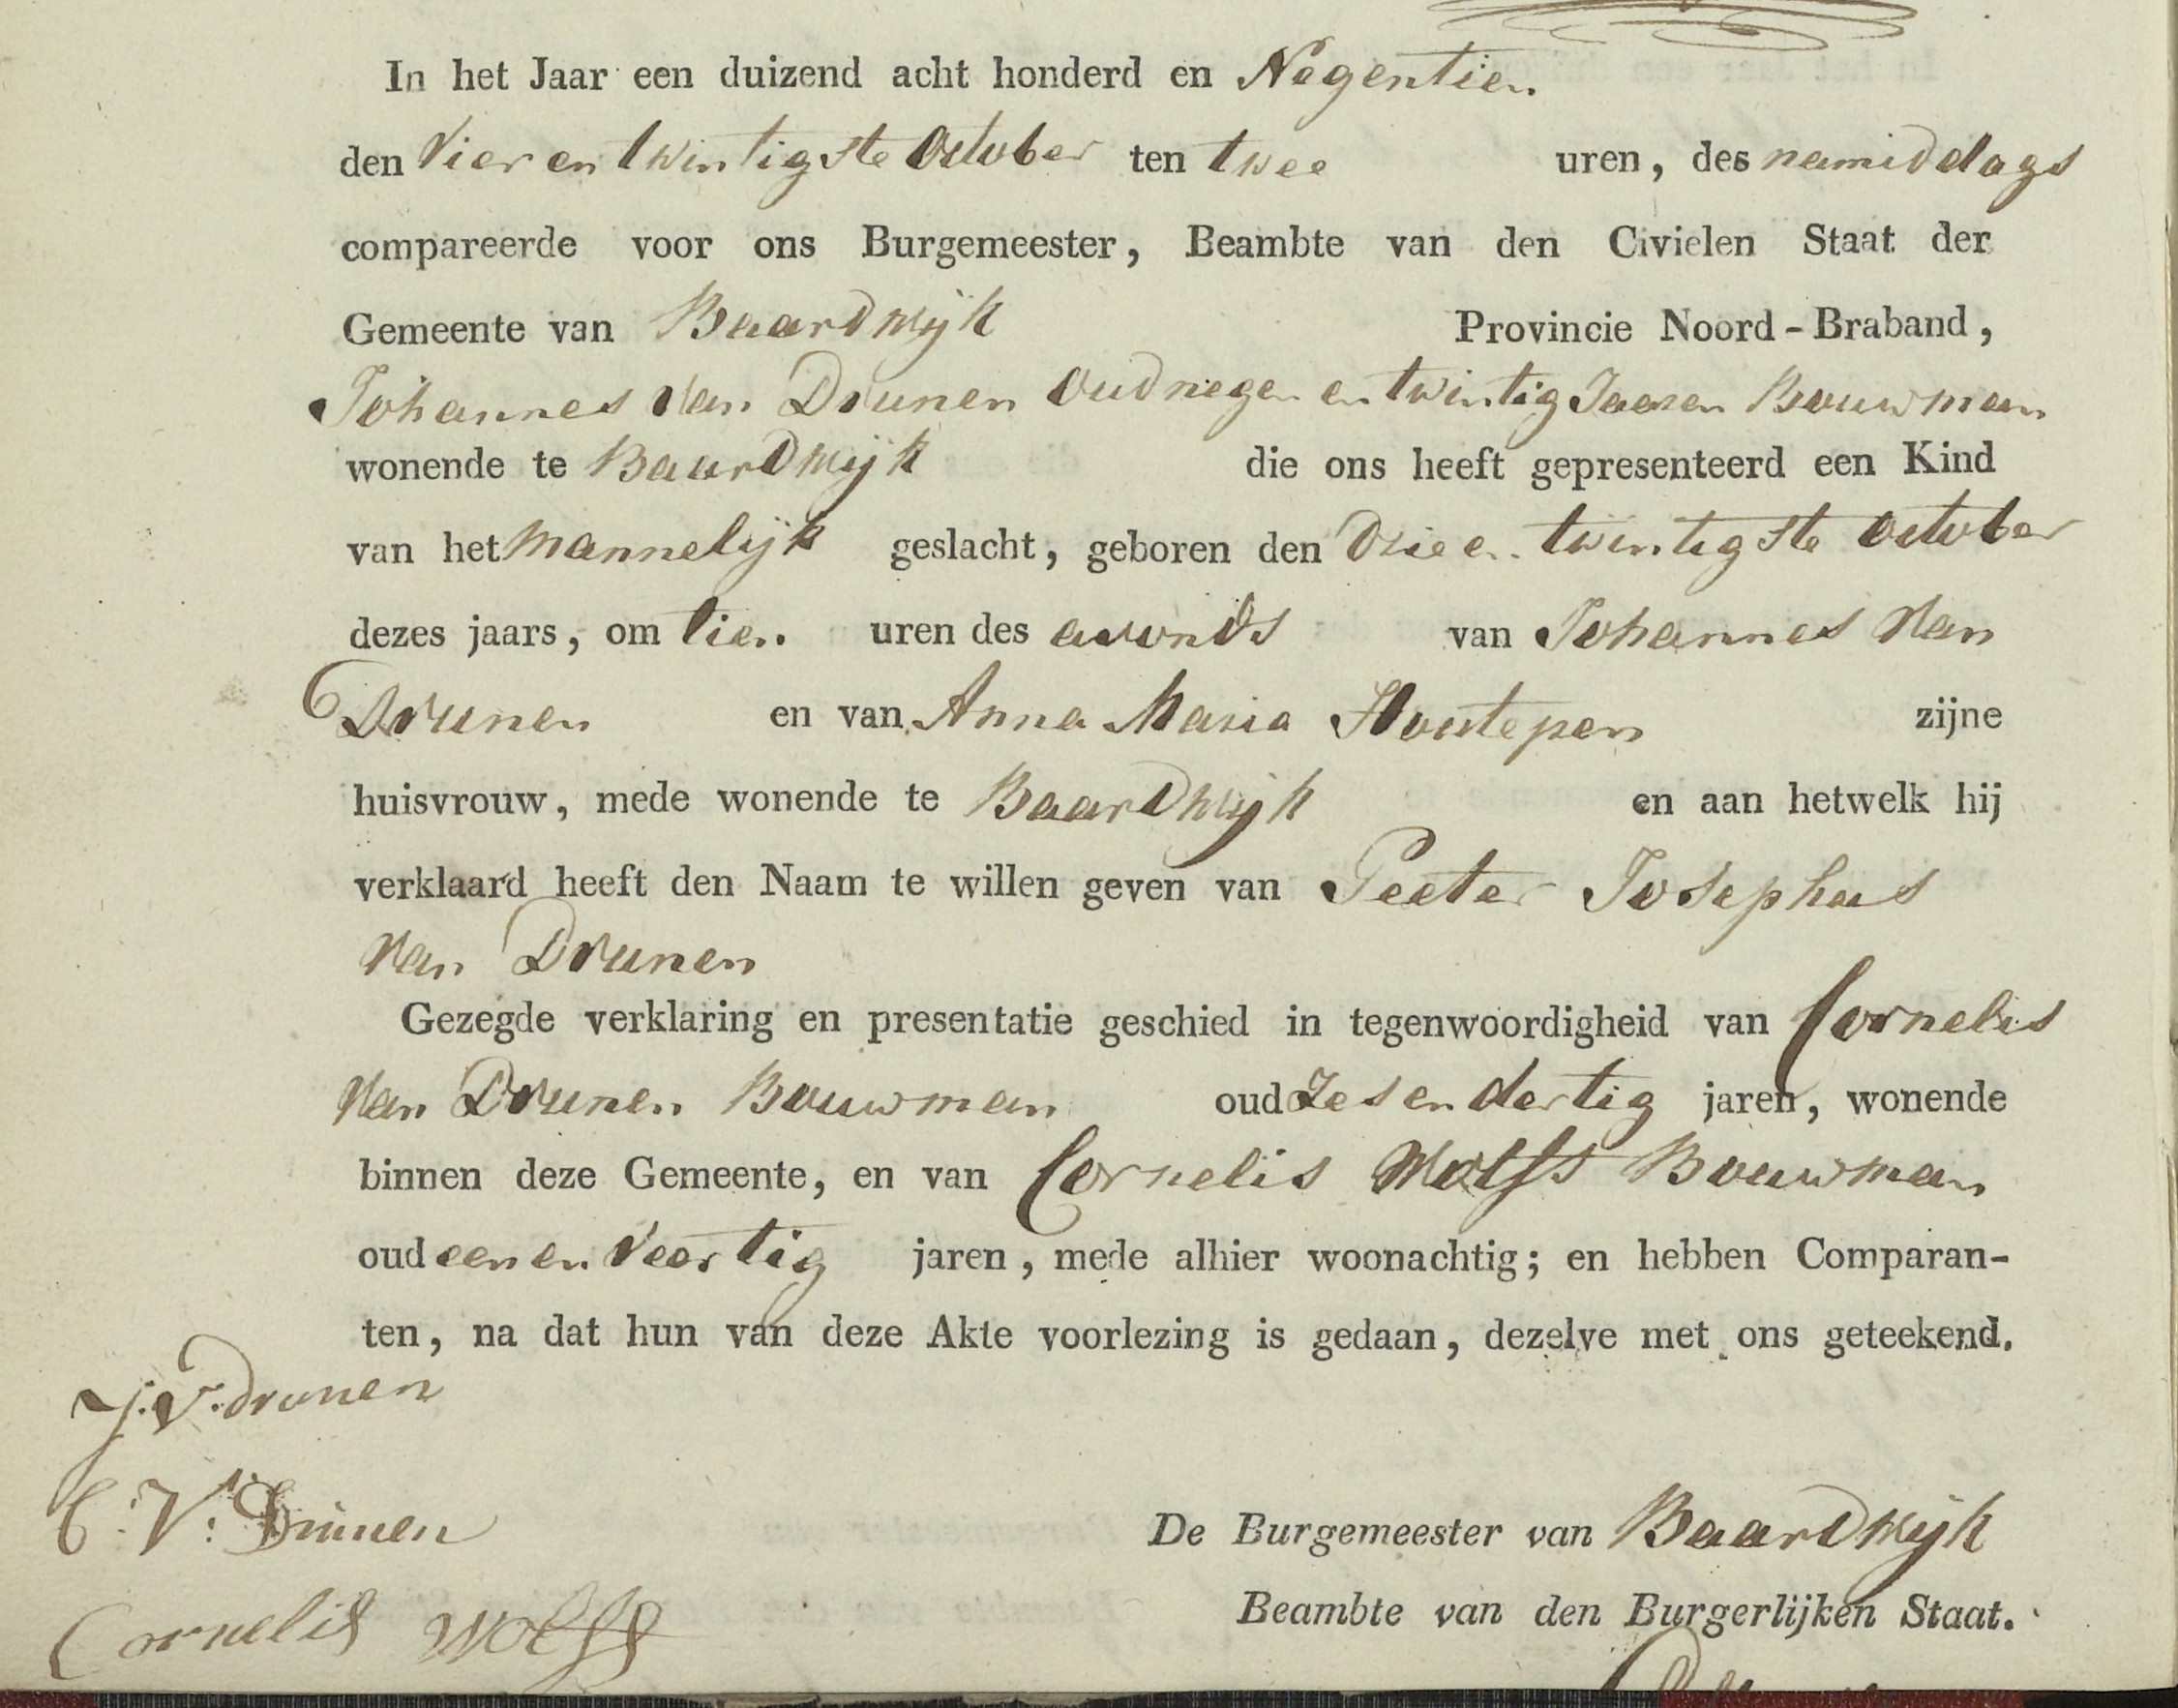 In het Jaar een duizend acht honderd en Negentien.
den Vier en twintigste October ten twee uren, des namiddags
compareerde voor ons Burgemeester, Beambte van den Civielen Staat der
Gemeente van Baardwijk Provincie Noord-Braband,
Johannes Van Drunen Oud negen en twintig Jaaren Bouwman
wonende te Baardwijk die ons heeft gepresenteerd een Kind
van het mannelijk geslacht, geboren den Drie en twintigste October
dezes jaars, om tien uren des avonds van Johannes Van
Drunen en van Anna Maria Houtepen zijne
huisvrouw, mede wonende te Baardwijk en aan hetwelk hij
verklaard heeft den Naam te willen geven van Peeter Josephus
Van Drunen
Gezegde verklaring en presentatie geschied in tegenwoordigheid van Cornelis
Van Drunen Bouwman oud Zes en dertig jaren, wonende
binnen deze Gemeente, en van Cornelis Wolfs Bouwman
oud een en Veertig jaren, mede alhier woonachtig; en hebben Comparan-
ten, na dat hun van deze Akte voorlezing is gedaan, dezelve met ons geteekend.
J. V. Drunen
C. V. Drunen
De Burgemeester van Baardwijk
Cornelis Wolfs
Beambte van den Burgerlijken Staat.